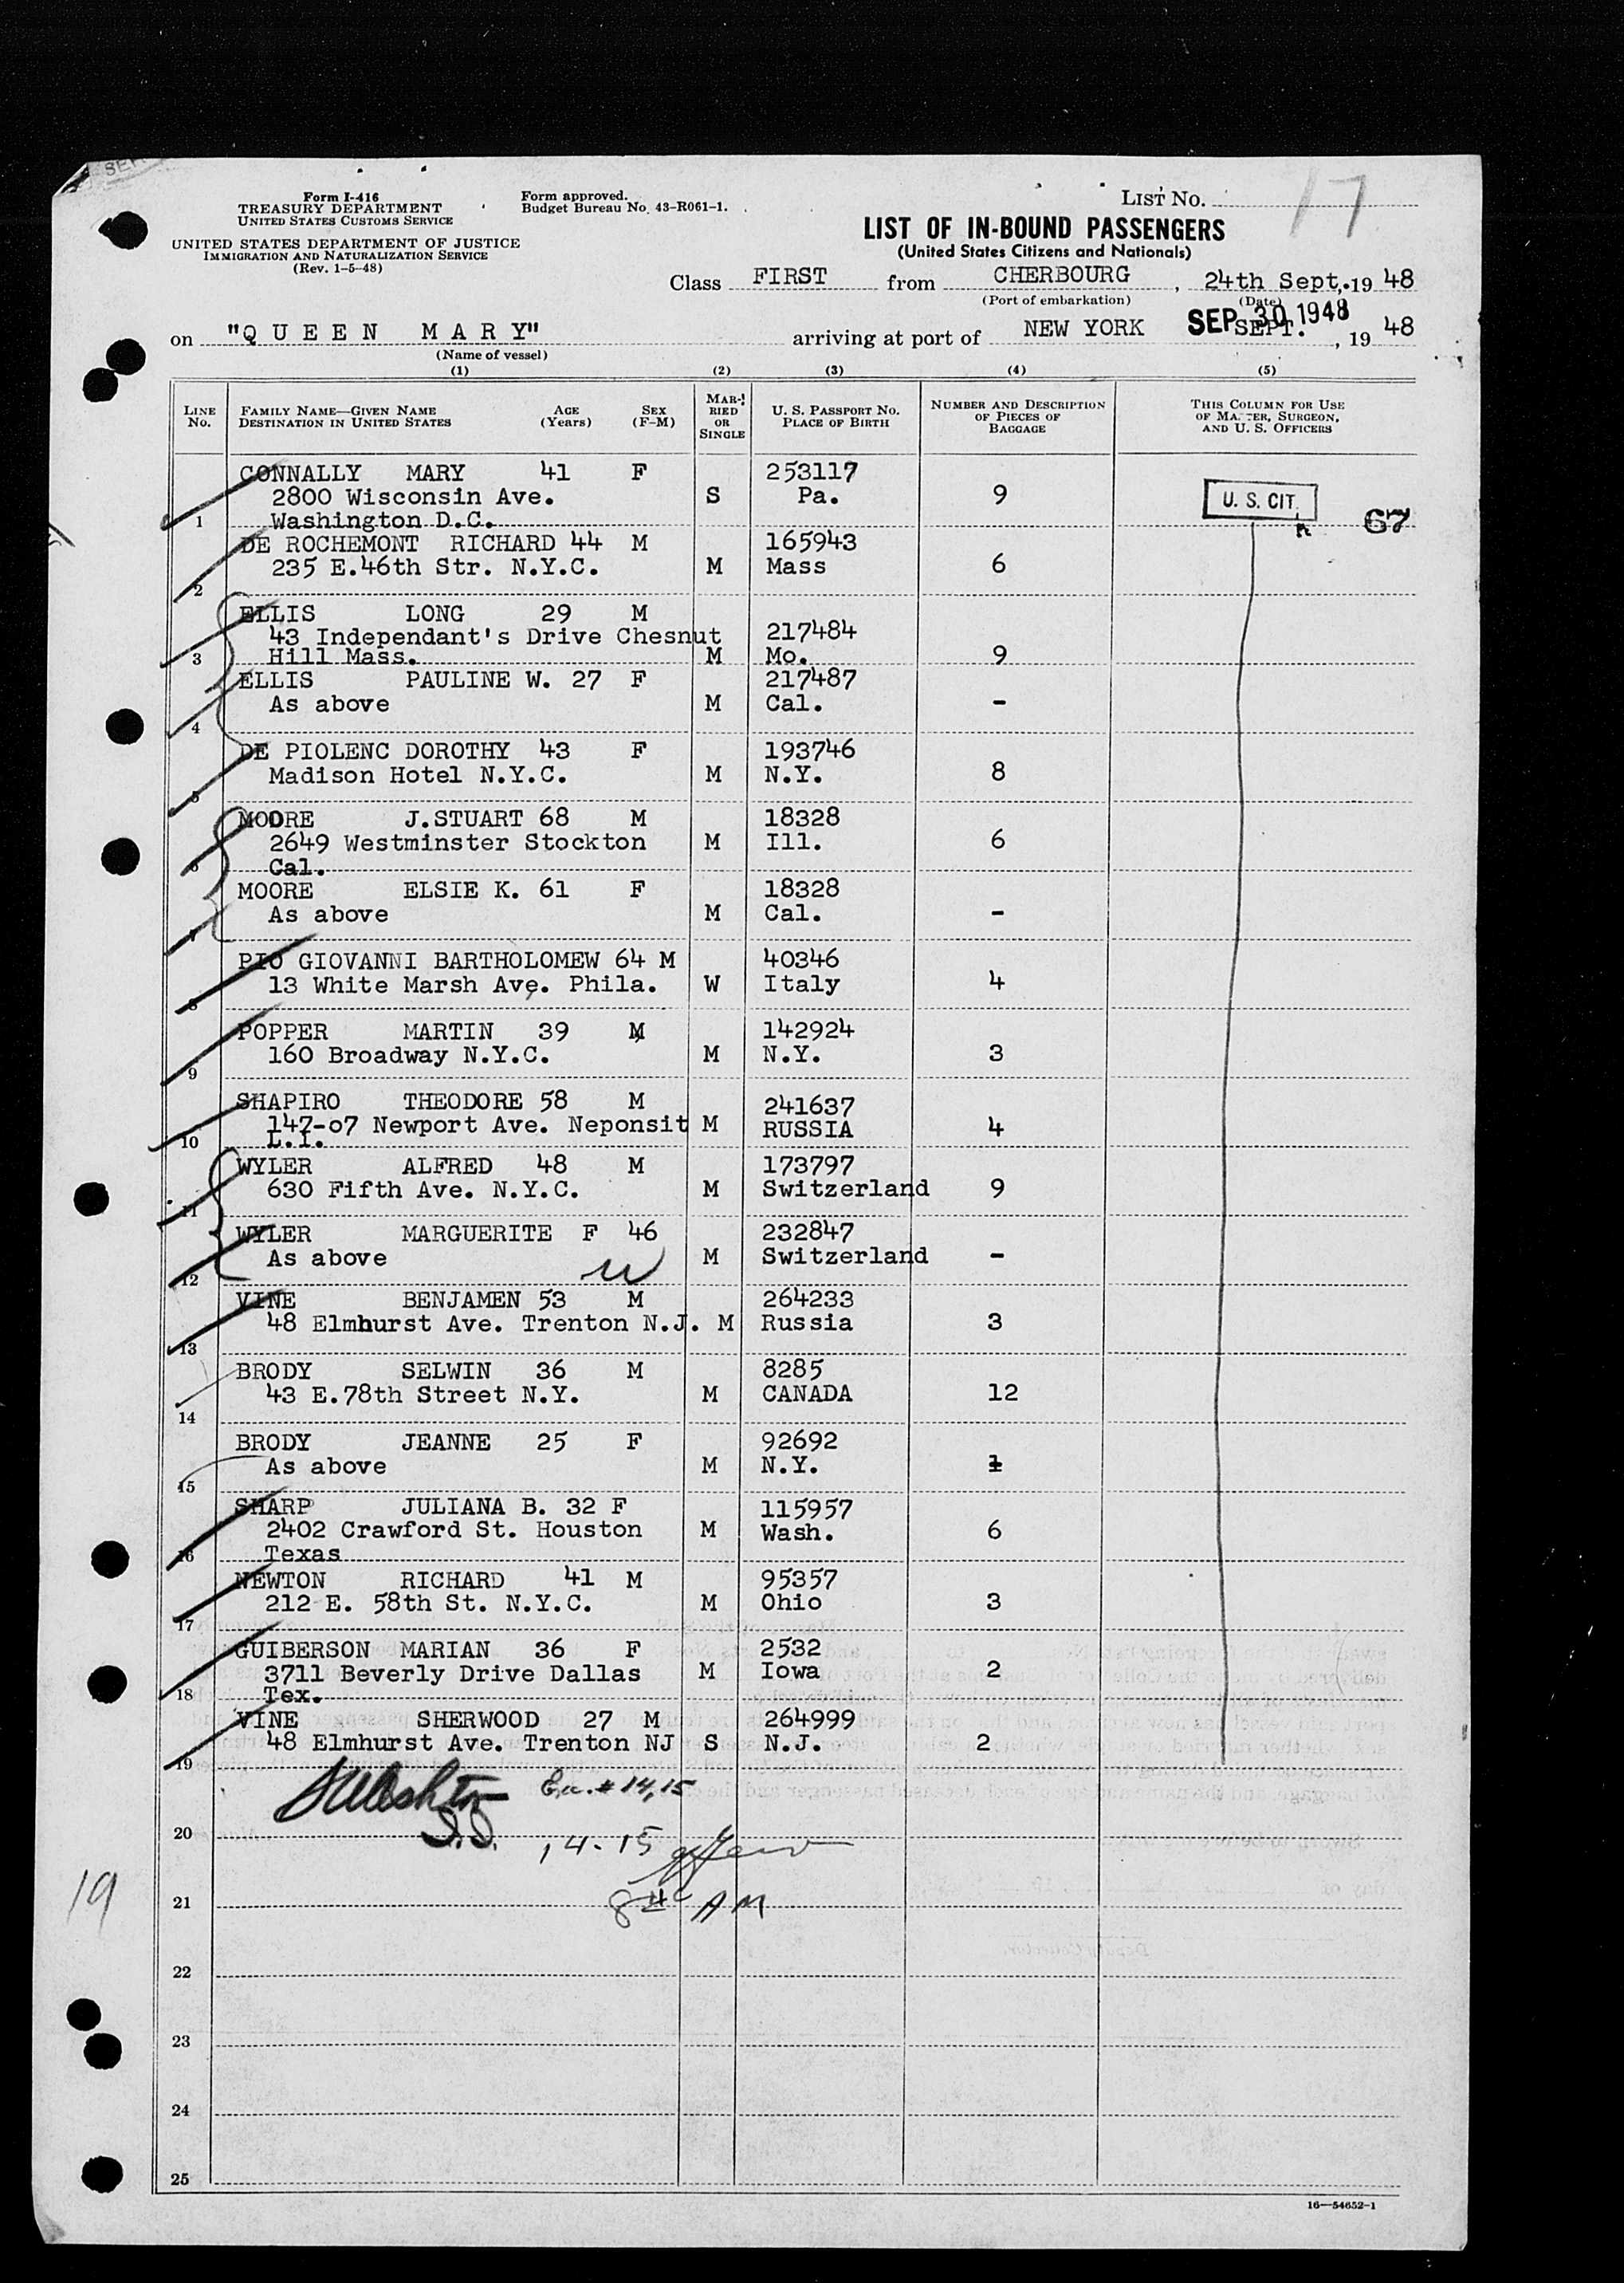 Form I-416
TREASURY DEPARTMENT
UNITED STATES CUSTOMS SERVICE
UNITED STATES DEPARTMENT OF JUSTICE
IMMIGRATION AND NATURALIZATION SERVICE
(Rev. 1-5-48)
Form approved.
Budget Bureau No. 43-R061-1.
LIST NO. 17
LIST OF IN-BOUND PASSENGERS
(United States Citizens and Nationals)
Class FIRST from CHERBOURG, 24th Sept, 19 48
(Port of embarkation) (Date)
SEP 30 1948
on "QUEEN MARY" arriving at port of NEW YORK SEPT., 19 48
(Name of vessel)
(1) (2) (3) (4) (5)
LINE No. FAMILY NAME—GIVEN NAME DESTINATION IN UNITED STATES AGE (Years) SEX (F-M) MARRIED OR SINGLE U. S. PASSPORT NO. PLACE OF BIRTH NUMBER AND DESCRIPTION OF PIECES OF BAGGAGE THIS COLUMN FOR USE OF MASTER, SURGEON, AND U. S. OFFICERS
CONNALLY MARY 41 F 253117
2800 Wisconsin Ave. S Pa. 9 U. S. CIT.
1 Washington D.C. 67
DE ROCHEMONT RICHARD 44 M 165943
235 E.46th Str. N.Y.C. M Mass 6
2
ELLIS LONG 29 M
43 Independant's Drive Chesnut 217484
3 Hill Mass. M Mo. 9
ELLIS PAULINE W. 27 F 217487
As above M Cal. -
4
DE PIOLENC DOROTHY 43 F 193746
Madison Hotel N.Y.C. M N.Y. 8
5
MOORE J.STUART 68 M 18328
2649 Westminster Stockton M Ill. 6
6 Cal.
MOORE ELSIE K. 61 F 18328
As above M Cal. -
7
PIO GIOVANNI BARTHOLOMEW 64 M 40346
13 White Marsh Ave. Phila. W Italy 4
8
POPPER MARTIN 39 M 142924
160 Broadway N.Y.C. M N.Y. 3
9
SHAPIRO THEODORE 58 M 241637
147-07 Newport Ave. Neponsit M RUSSIA 4
10 L.I.
WYLER ALFRED 48 M 173797
630 Fifth Ave. N.Y.C. M Switzerland 9
11
WYLER MARGUERITE F 46 232847
As above M Switzerland -
12
VINE BENJAMEN 53 M 264233
48 Elmhurst Ave. Trenton N.J. M Russia 3
13
BRODY SELWIN 36 M 8285
43 E.78th Street N.Y. M CANADA 12
14
BRODY JEANNE 25 F 92692
As above M N.Y. 1
15
SHARP JULIANA B. 32 F 115957
2402 Crawford St. Houston M Wash. 6
16 Texas
NEWTON RICHARD 41 M 95357
212 E. 58th St. N.Y.C. M Ohio 3
17
GUIBERSON MARIAN 36 F 2532
3711 Beverly Drive Dallas M Iowa 2
18 Tex.
VINE SHERWOOD 27 M 264999
48 Elmhurst Ave. Trenton NJ S N.J. 2
19
# 14,15
20
14-15
19
21
AM
22
23
24
25
16—54652-1